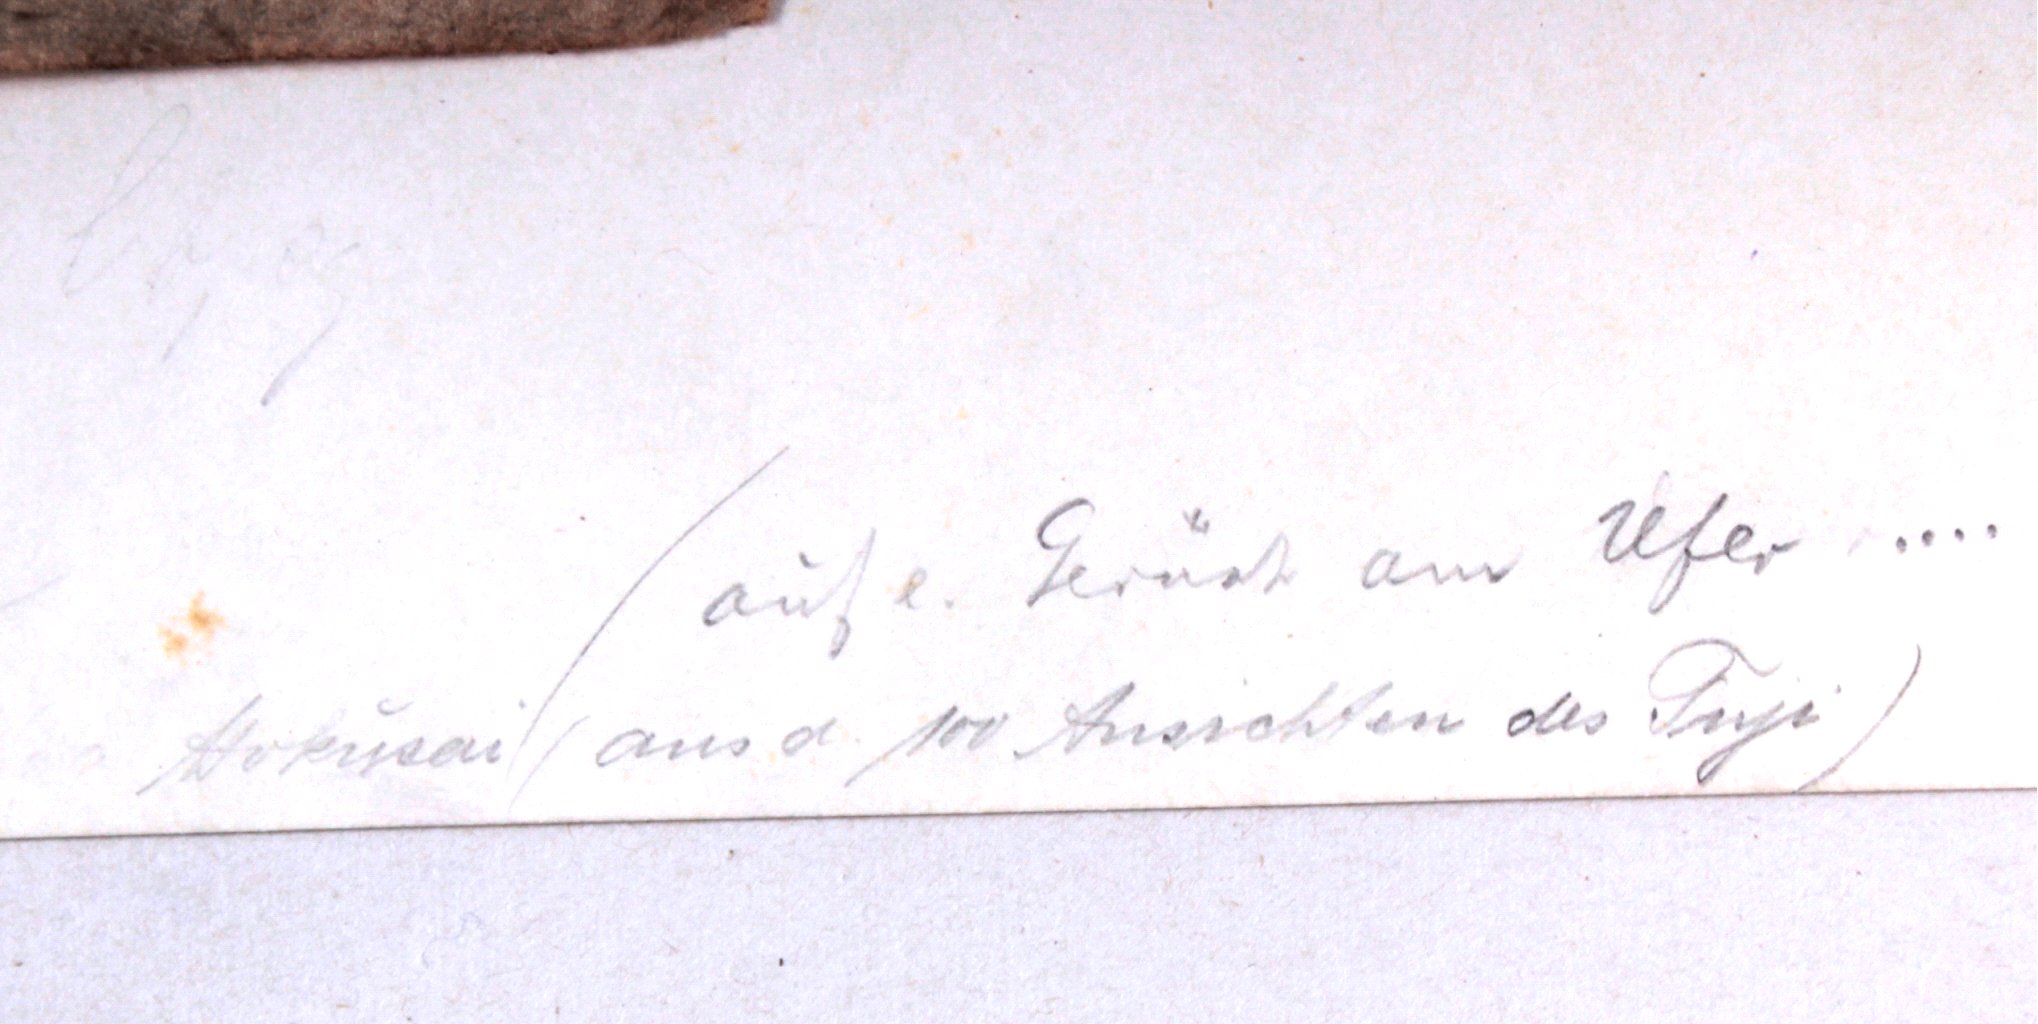 (auf e. Gerüst am Ufer ....
Hokusai (aus d. 100 Ansichten des Fuji)